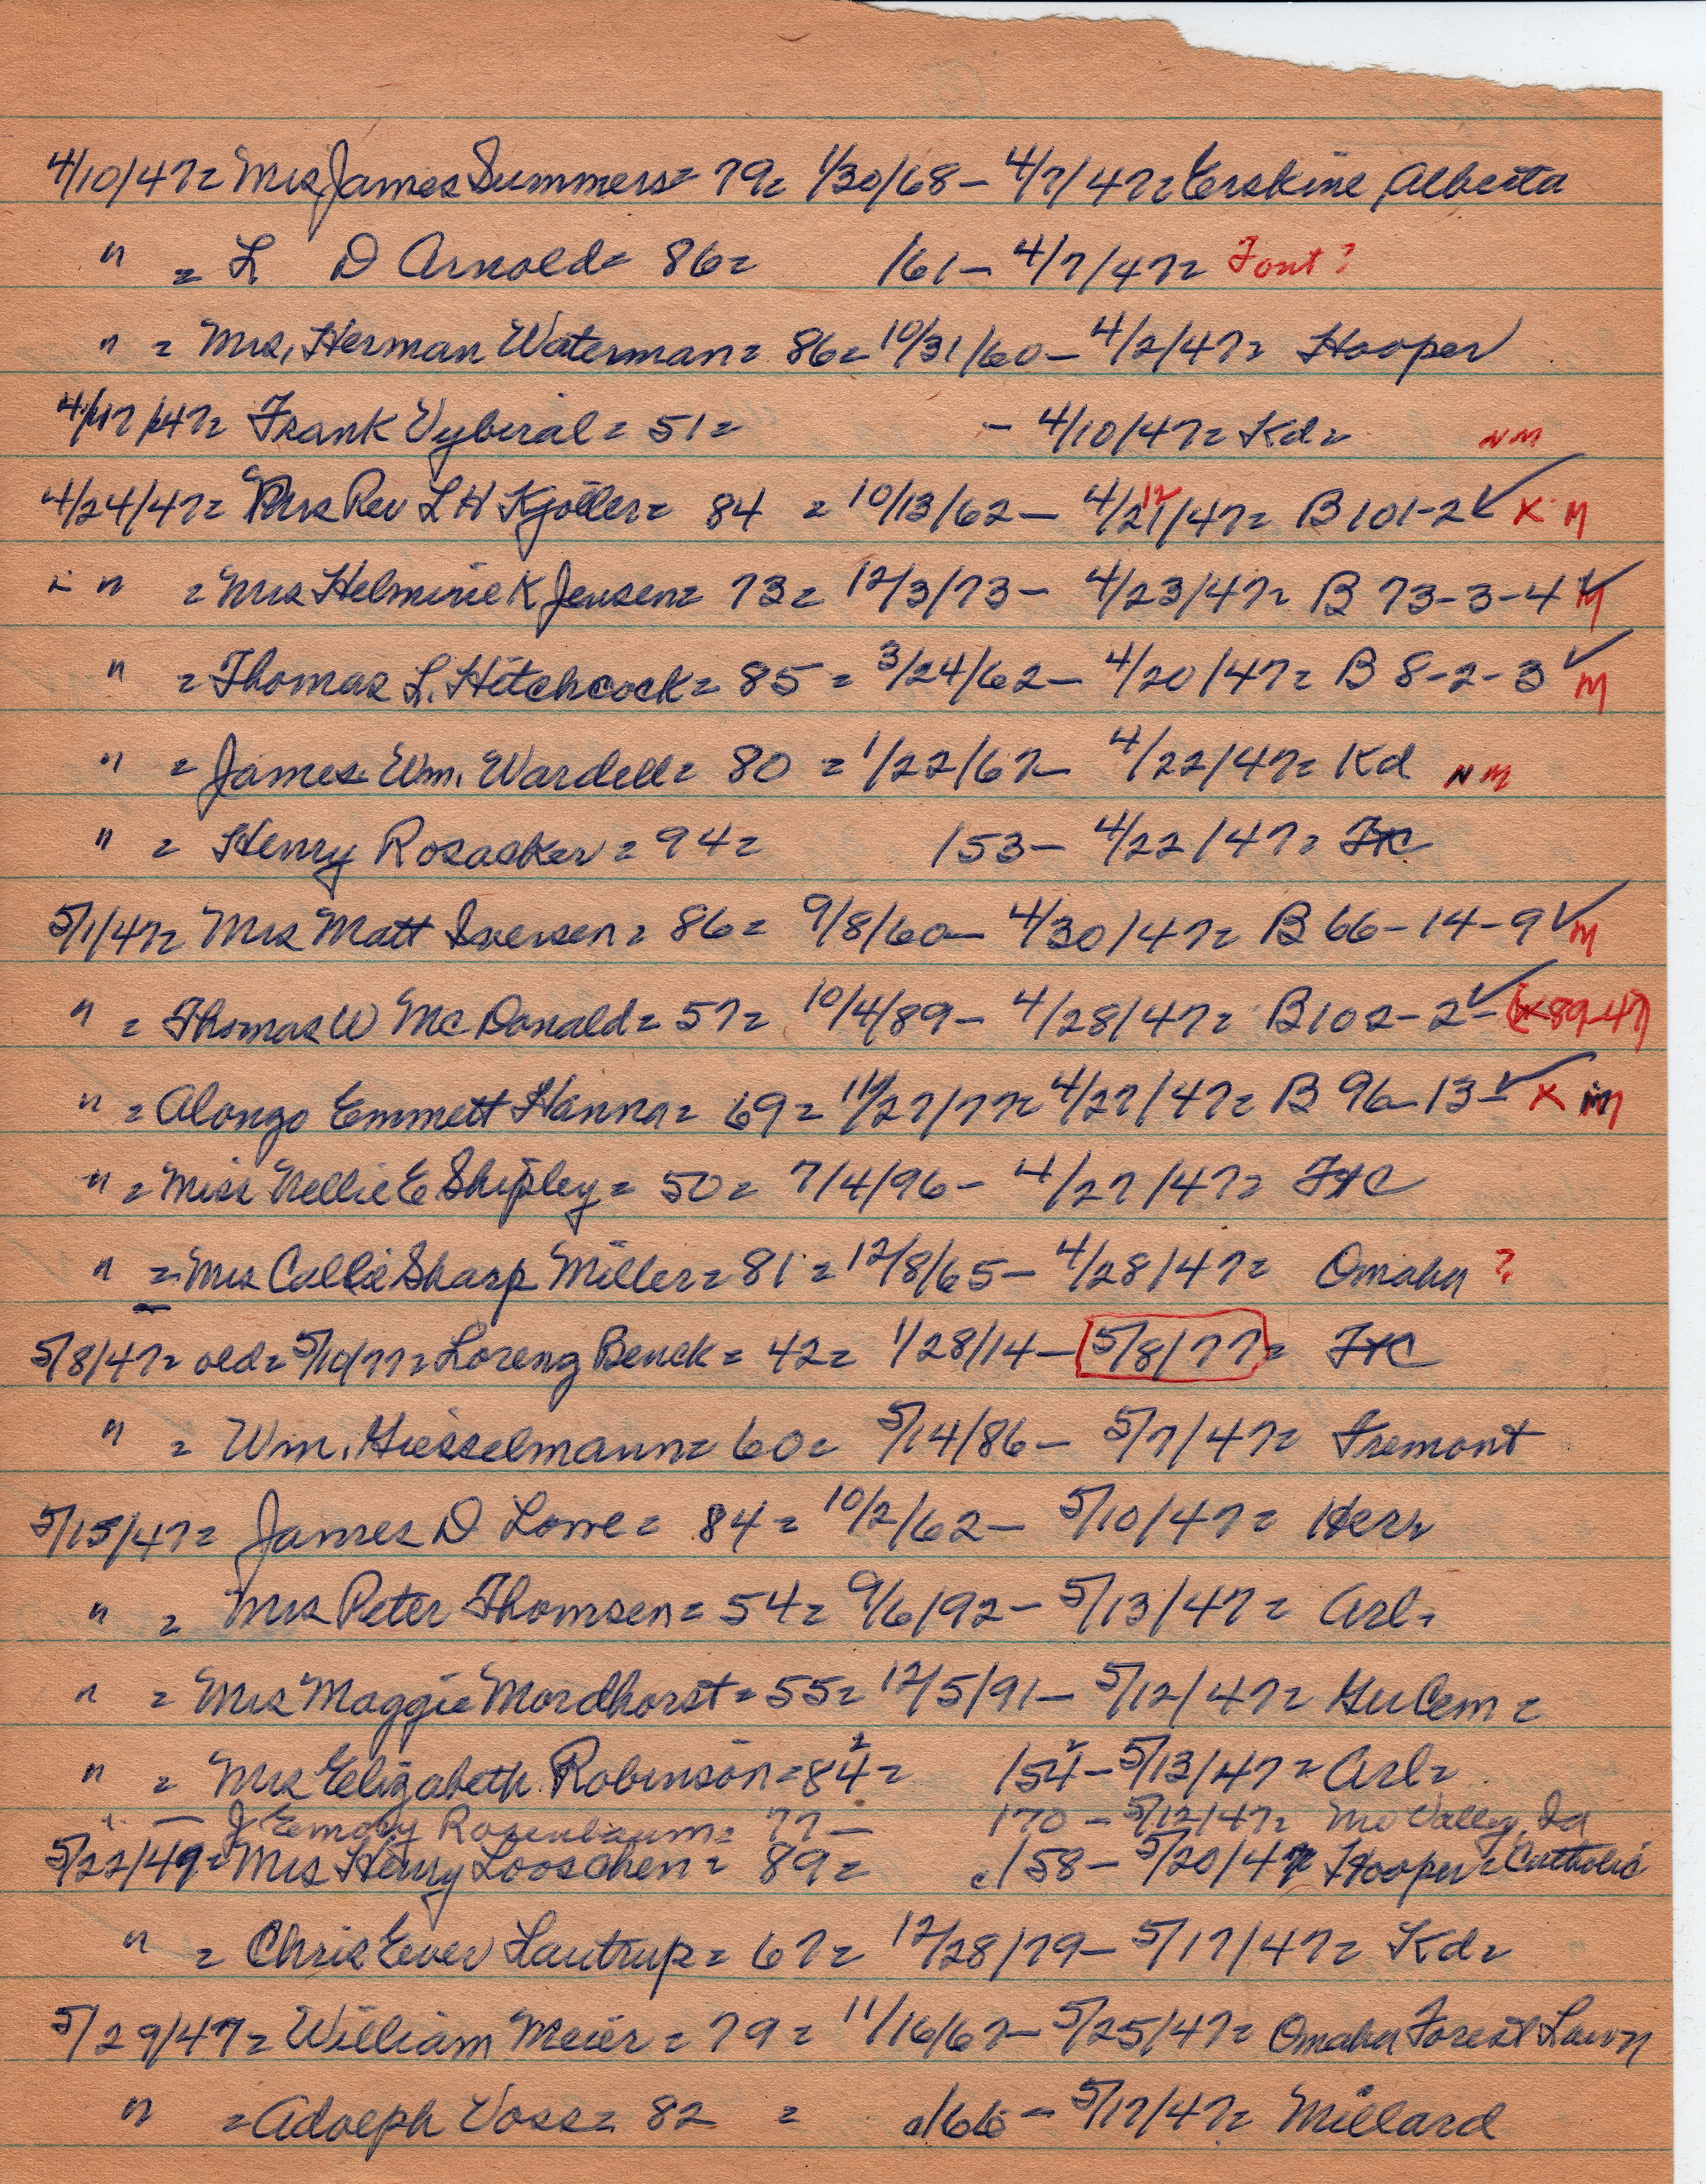 4/10/47= Mrs James Summers= 79= 1/30/68- 4/7/47= Erskine, Alberta
" = L D Arnold= 86= /61- 4/7/47= Font?
" = Mrs. Herman Waterman= 86= 10/31/60- 4/2/47= Hooper
4/17/47= Frank Vybiral= 51= - 4/10/47= Kd= NM
4/24/47= Mrs Rev L H Kjoller= 84 = 10/13/62- 4/21/47= B 101-2 ✓ X M
" = Mrs Helmine K Jensen= 73= 12/3/73- 4/23/47= B 73-3-4 ✓ M
" = Thomas L. Hitchcock= 85= 3/24/62- 4/20/47= B 8-2-3 ✓ M
" = James Wm. Wardell= 80 = 1/22/67- 4/22/47= Kd NM
" = Henry Rosacker= 94= /53- 4/22/47= FtC
5/1/47= Mrs Matt Iversen= 86= 9/8/60- 4/30/47= B 66-14-9 ✓ M
" = Thomas W McDonald= 57= 10/4/89- 4/28/47= B 102-2 ✓ - (X 89-47)
" = Alonzo Emmett Hanna= 69= 11/27/77= 4/27/47= B 96-13 ✓ X M
" = Miss Nellie E Shipley= 50= 7/4/96- 4/27/47= FtC
" = Mrs Callie Sharp Miller= 81= 12/8/65- 4/28/47= Omaha ?
5/8/47= old= 5/10/77= Lorenz Benck= 42= 1/28/14- 5/8/77= FtC
" = Wm. Giesselmann= 60= 5/14/86- 5/7/47= Fremont
5/15/47= James D Lowe= 84= 10/2/62- 5/10/47= Her=
" = Mrs Peter Thomsen= 54= 9/6/92- 5/13/47= Arl=
" = Mrs Maggie Mordhorst= 55= 12/5/91- 5/12/47= Gu Cem=
" = Mrs Elizabeth Robinson= 84= /54- 5/13/47= Arl=
" - J Emory Rosenbaum= 77- /70- 5/12/47= Mo Valley, Ia
5/22/49= Mrs Henry Looschen= 89= c/58- 5/20/47 Hooper= Catholic
" = Chris Ever Lautrup= 67= 12/28/79- 5/17/47= Kd=
5/29/47= William Meier= 79= 11/16/67- 5/25/47= Omaha Forest Lawn
" = Adolph Voss= 82 = c/66- 5/17/47= Millard